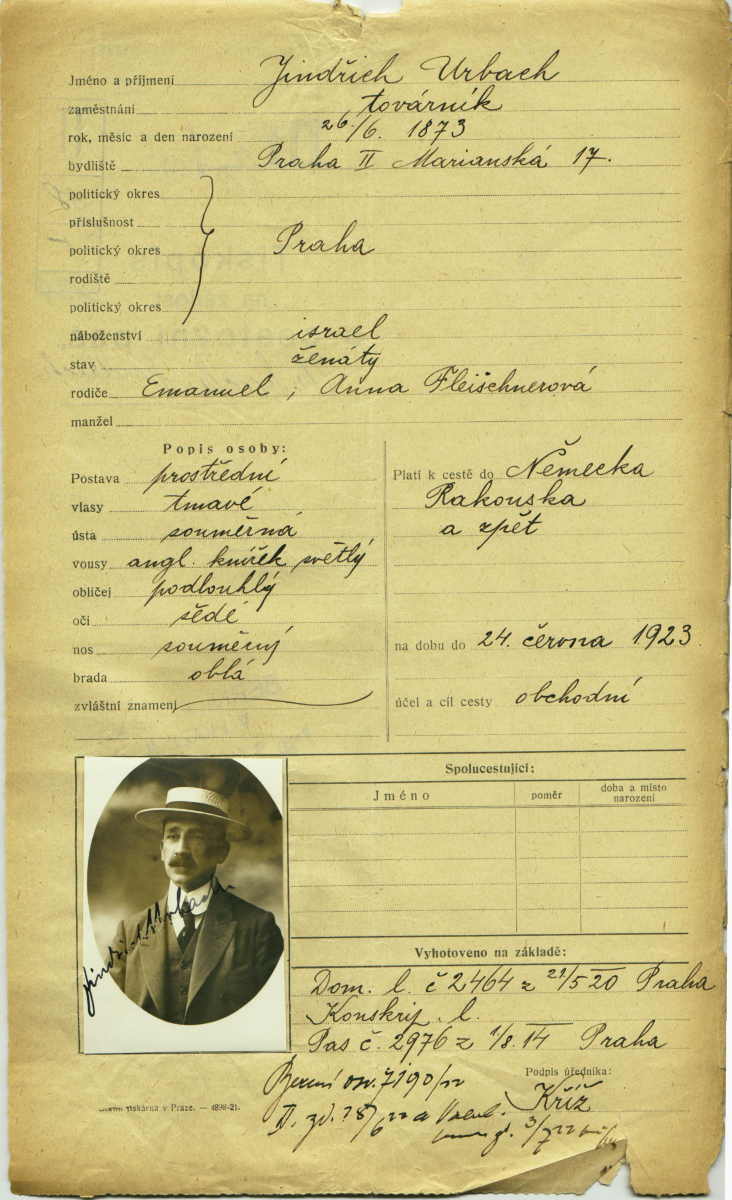 Jméno a příjmení Jindřich Urbach
zaměstnání továrník
rok, měsíc a den narození 26/6. 1873
bydliště Praha II Marianská 17.
politický okres
příslušnost
politický okres Praha
rodiště
politický okres
náboženství israel
stav ženatý
rodiče Emanuel, Anna Fleischnerová
manžel
Popis osoby:
Postava prostřední
vlasy tmavé
ústa souměrná
vousy angl. knírek světlý
obličej podlouhlý
oči šedé
nos souměrný
brada oblá
zvláštní znamení
Platí k cestě do Německa
Rakouska
a zpět
na dobu do 24. června 1923
účel a cíl cesty obchodní
Spolucestující:
Jméno poměr doba a místo narození
Jindř. Urbach
Vyhotoveno na základě:
Dom. l. č 2464 z 21/5 20 Praha
Konskrip. l.
Pas č. 2976 z 1/8. 14 Praha
Podpis úředníka:
Kříž
tiskárna v Praze. — 4898-21.